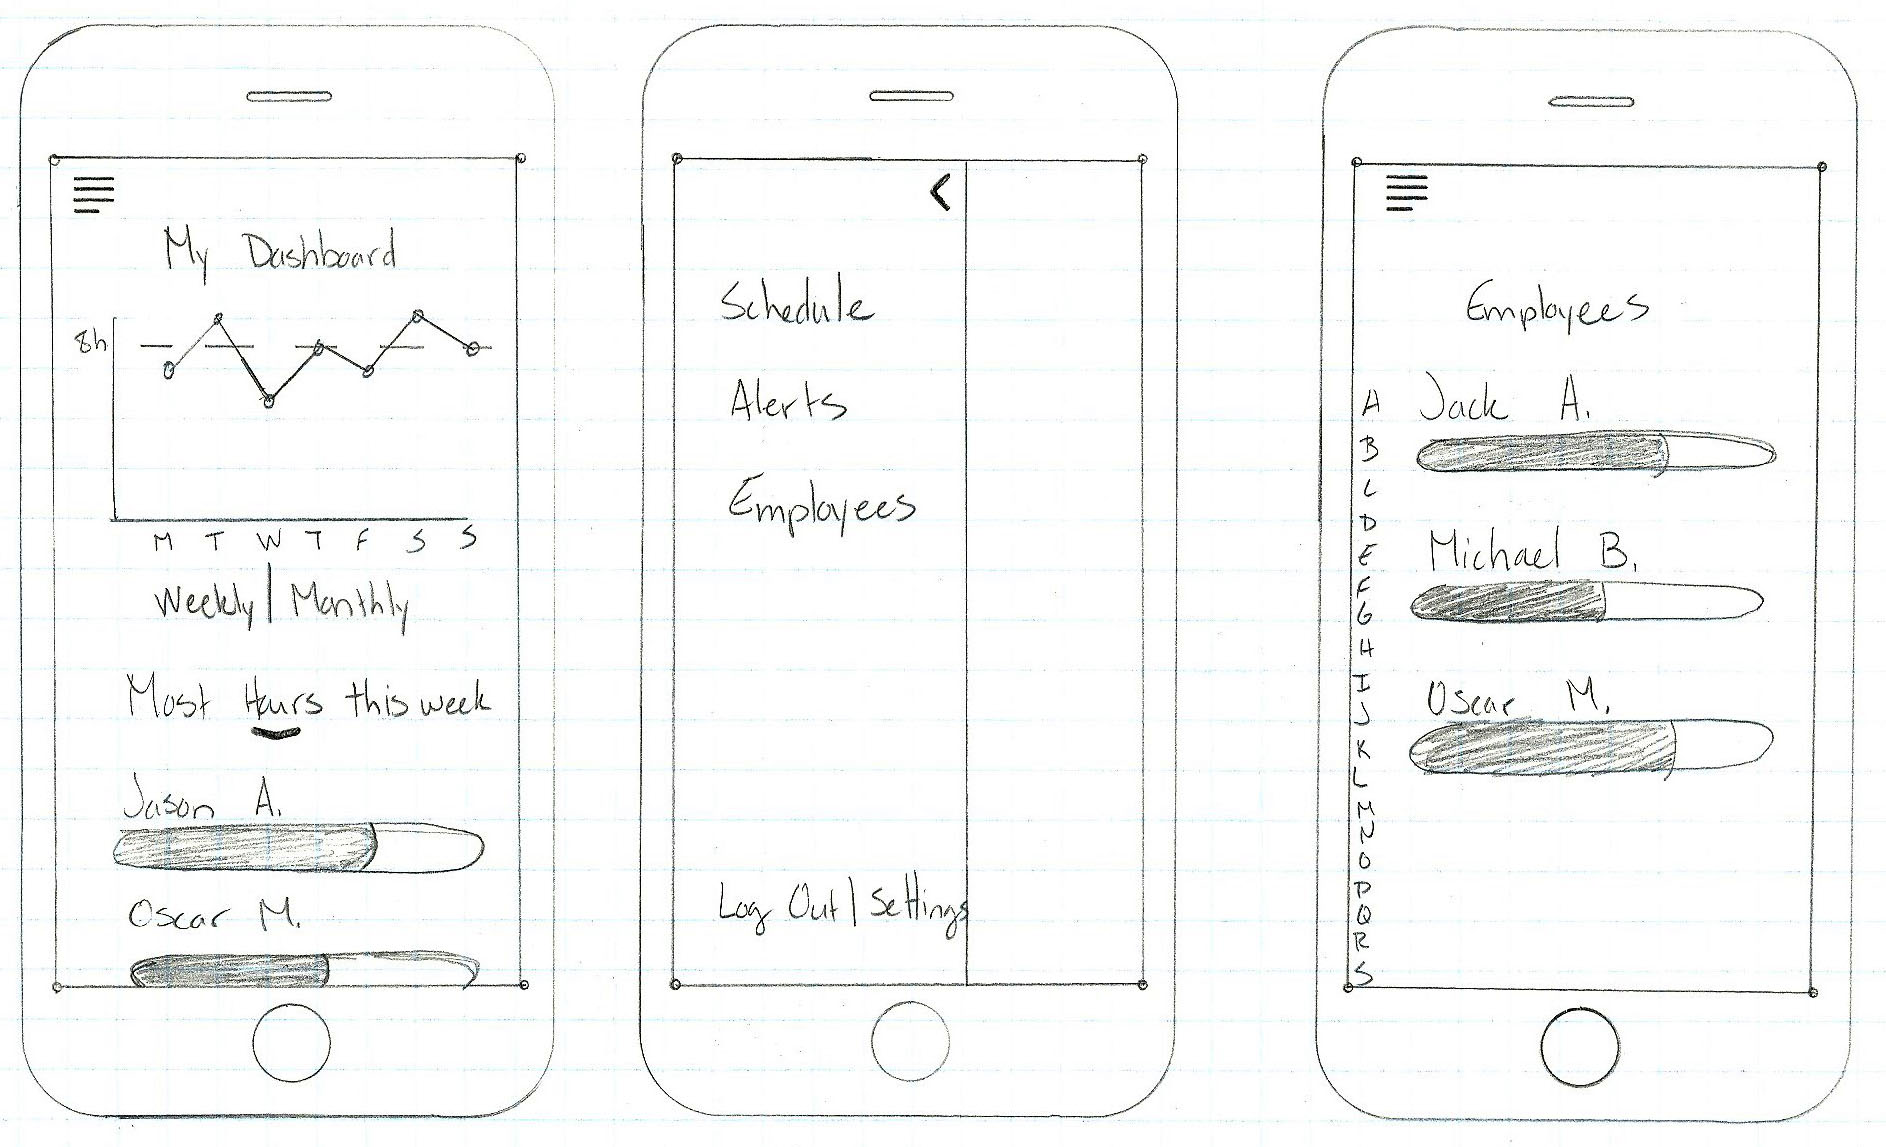 My Dashboard
8h
M T W T F S S
Weekly | Monthly
Most Hours this week
Jason A.
Oscar M.
Schedule
Alerts
Employees
Log Out | Settings
Employees
A
B
C
D
E
F
G
H
I
J
K
L
M
N
O
P
Q
R
S
Jack A.
Michael B.
Oscar M.